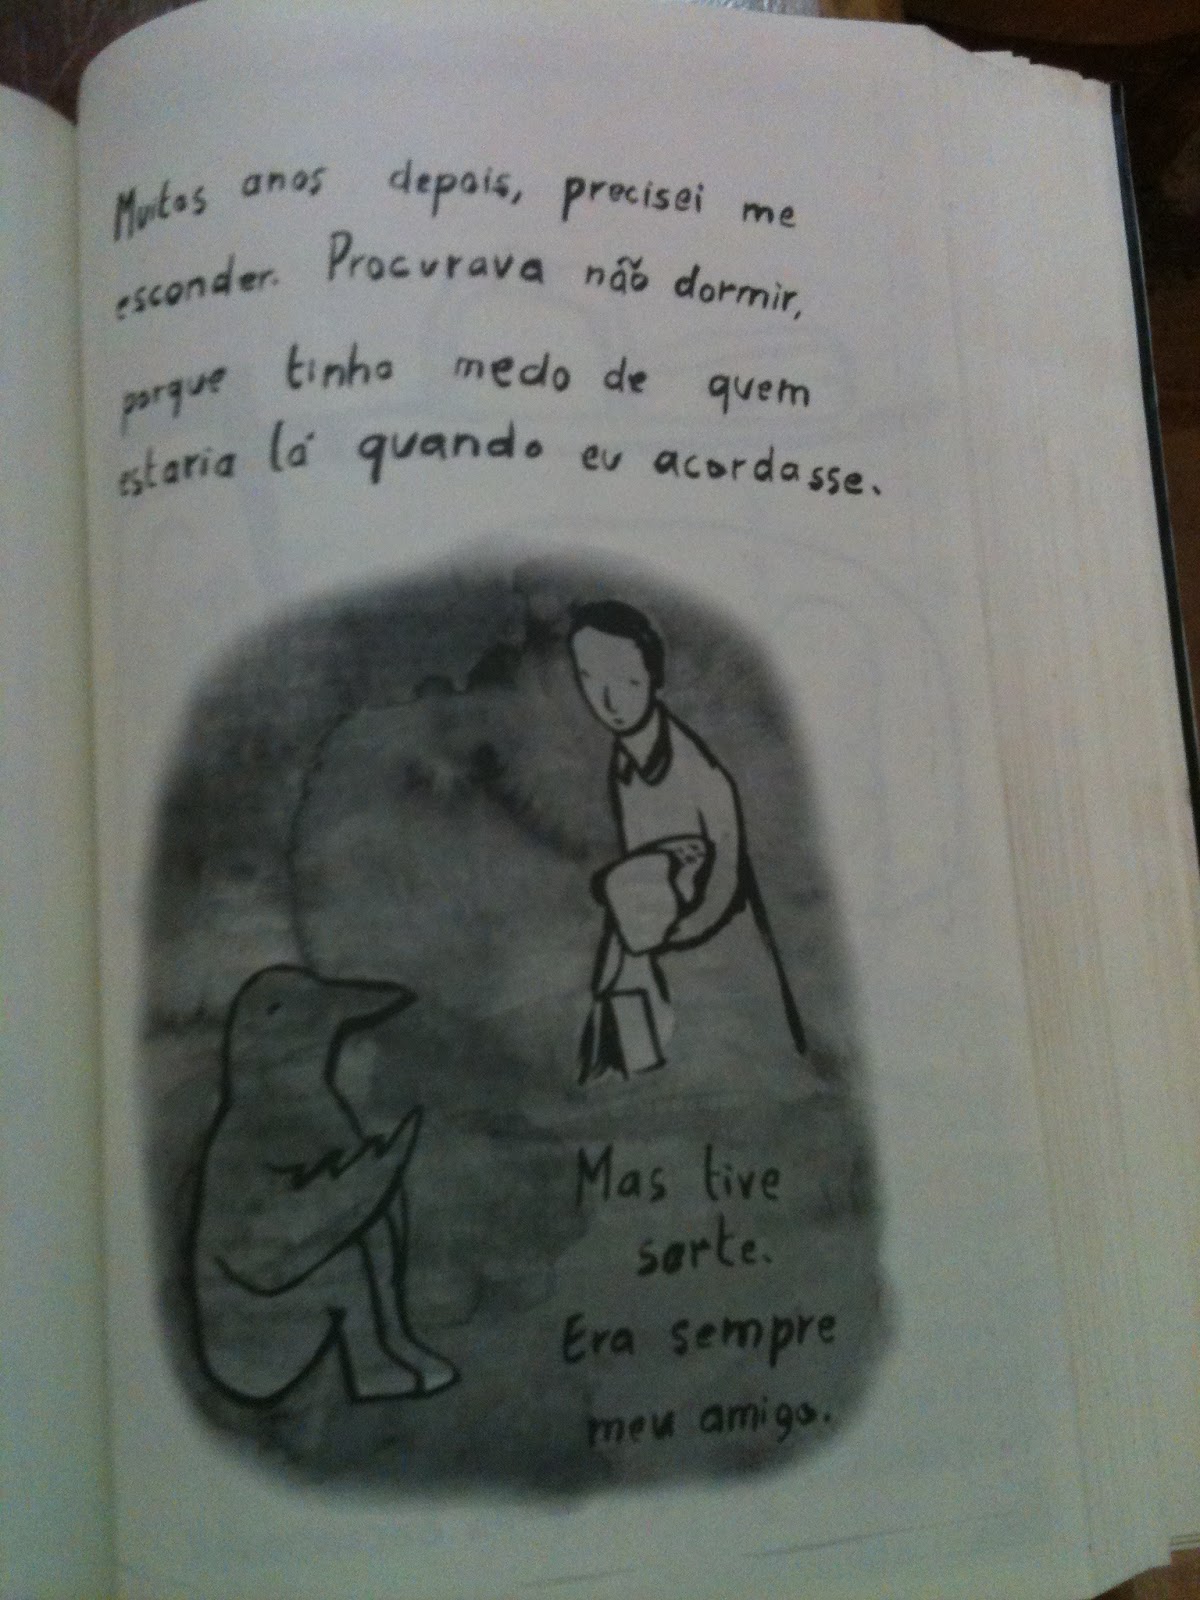 Muitos anos depois, precisei me
esconder. Procurava não dormir,
porque tinha medo de quem
estaria lá quando eu acordasse.
Mas tive
sorte.
Era sempre
meu amigo.